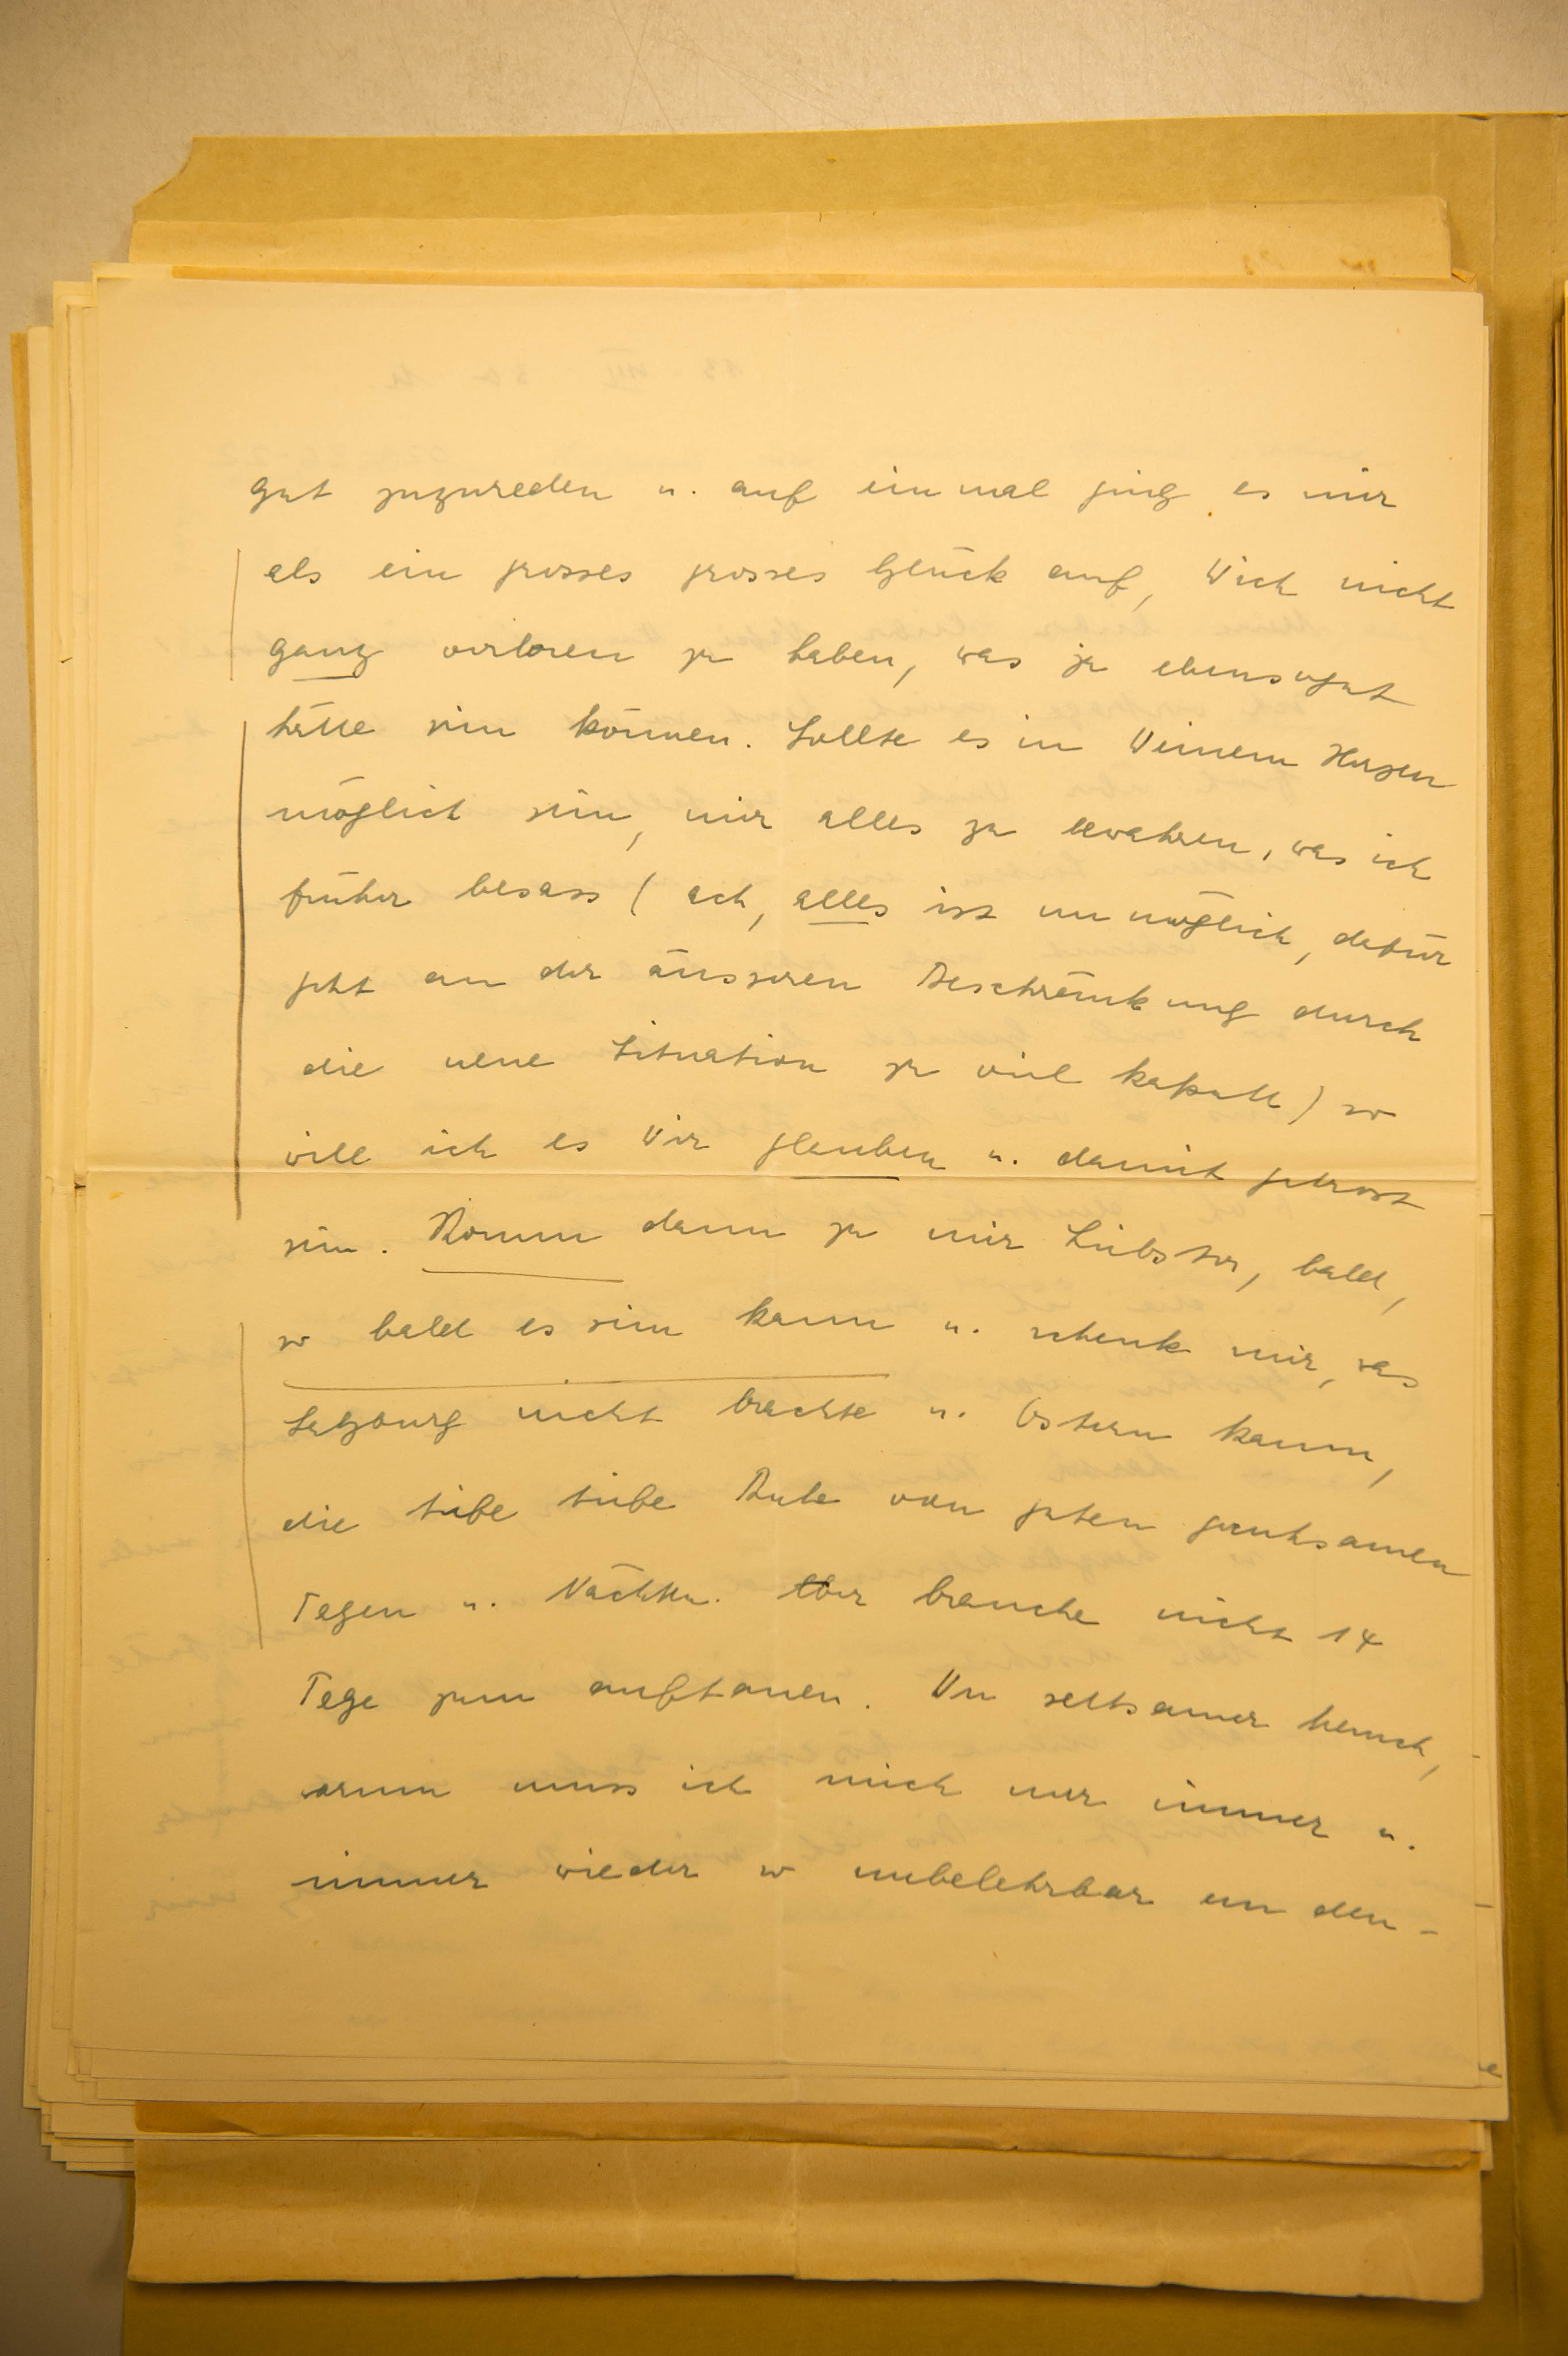 gut zuzureden u. auf einmal ging es mir
als ein grosses grosses Glück auf, Dich nicht
ganz verloren zu haben, was ja ebensogut
hätte sein können. Sollte es in Deinem Herzen
möglich sein, mir alles zu bewahren, was ich
früher besass (ach, alles ist unmöglich, dafür
geht an der äusseren Beschränkung durch
die neue Situation zu viel kaputt) so
will ich es Dir glauben u. damit getrost
sein. Komm dann zu mir Liebster, bald,
so bald es sein kann u. schenk mir, was
Salzburg nicht brachte u. Ostern kaum,
die tiefe tiefe Ruhe von guten gemeinsamen
Tagen u. Nächten. Aber brauche nicht 14
Tage zum auftauen. Du seltsamer Mensch,
warum muss ich mich nur immer u.
immer wieder so unbelehrbar an den-